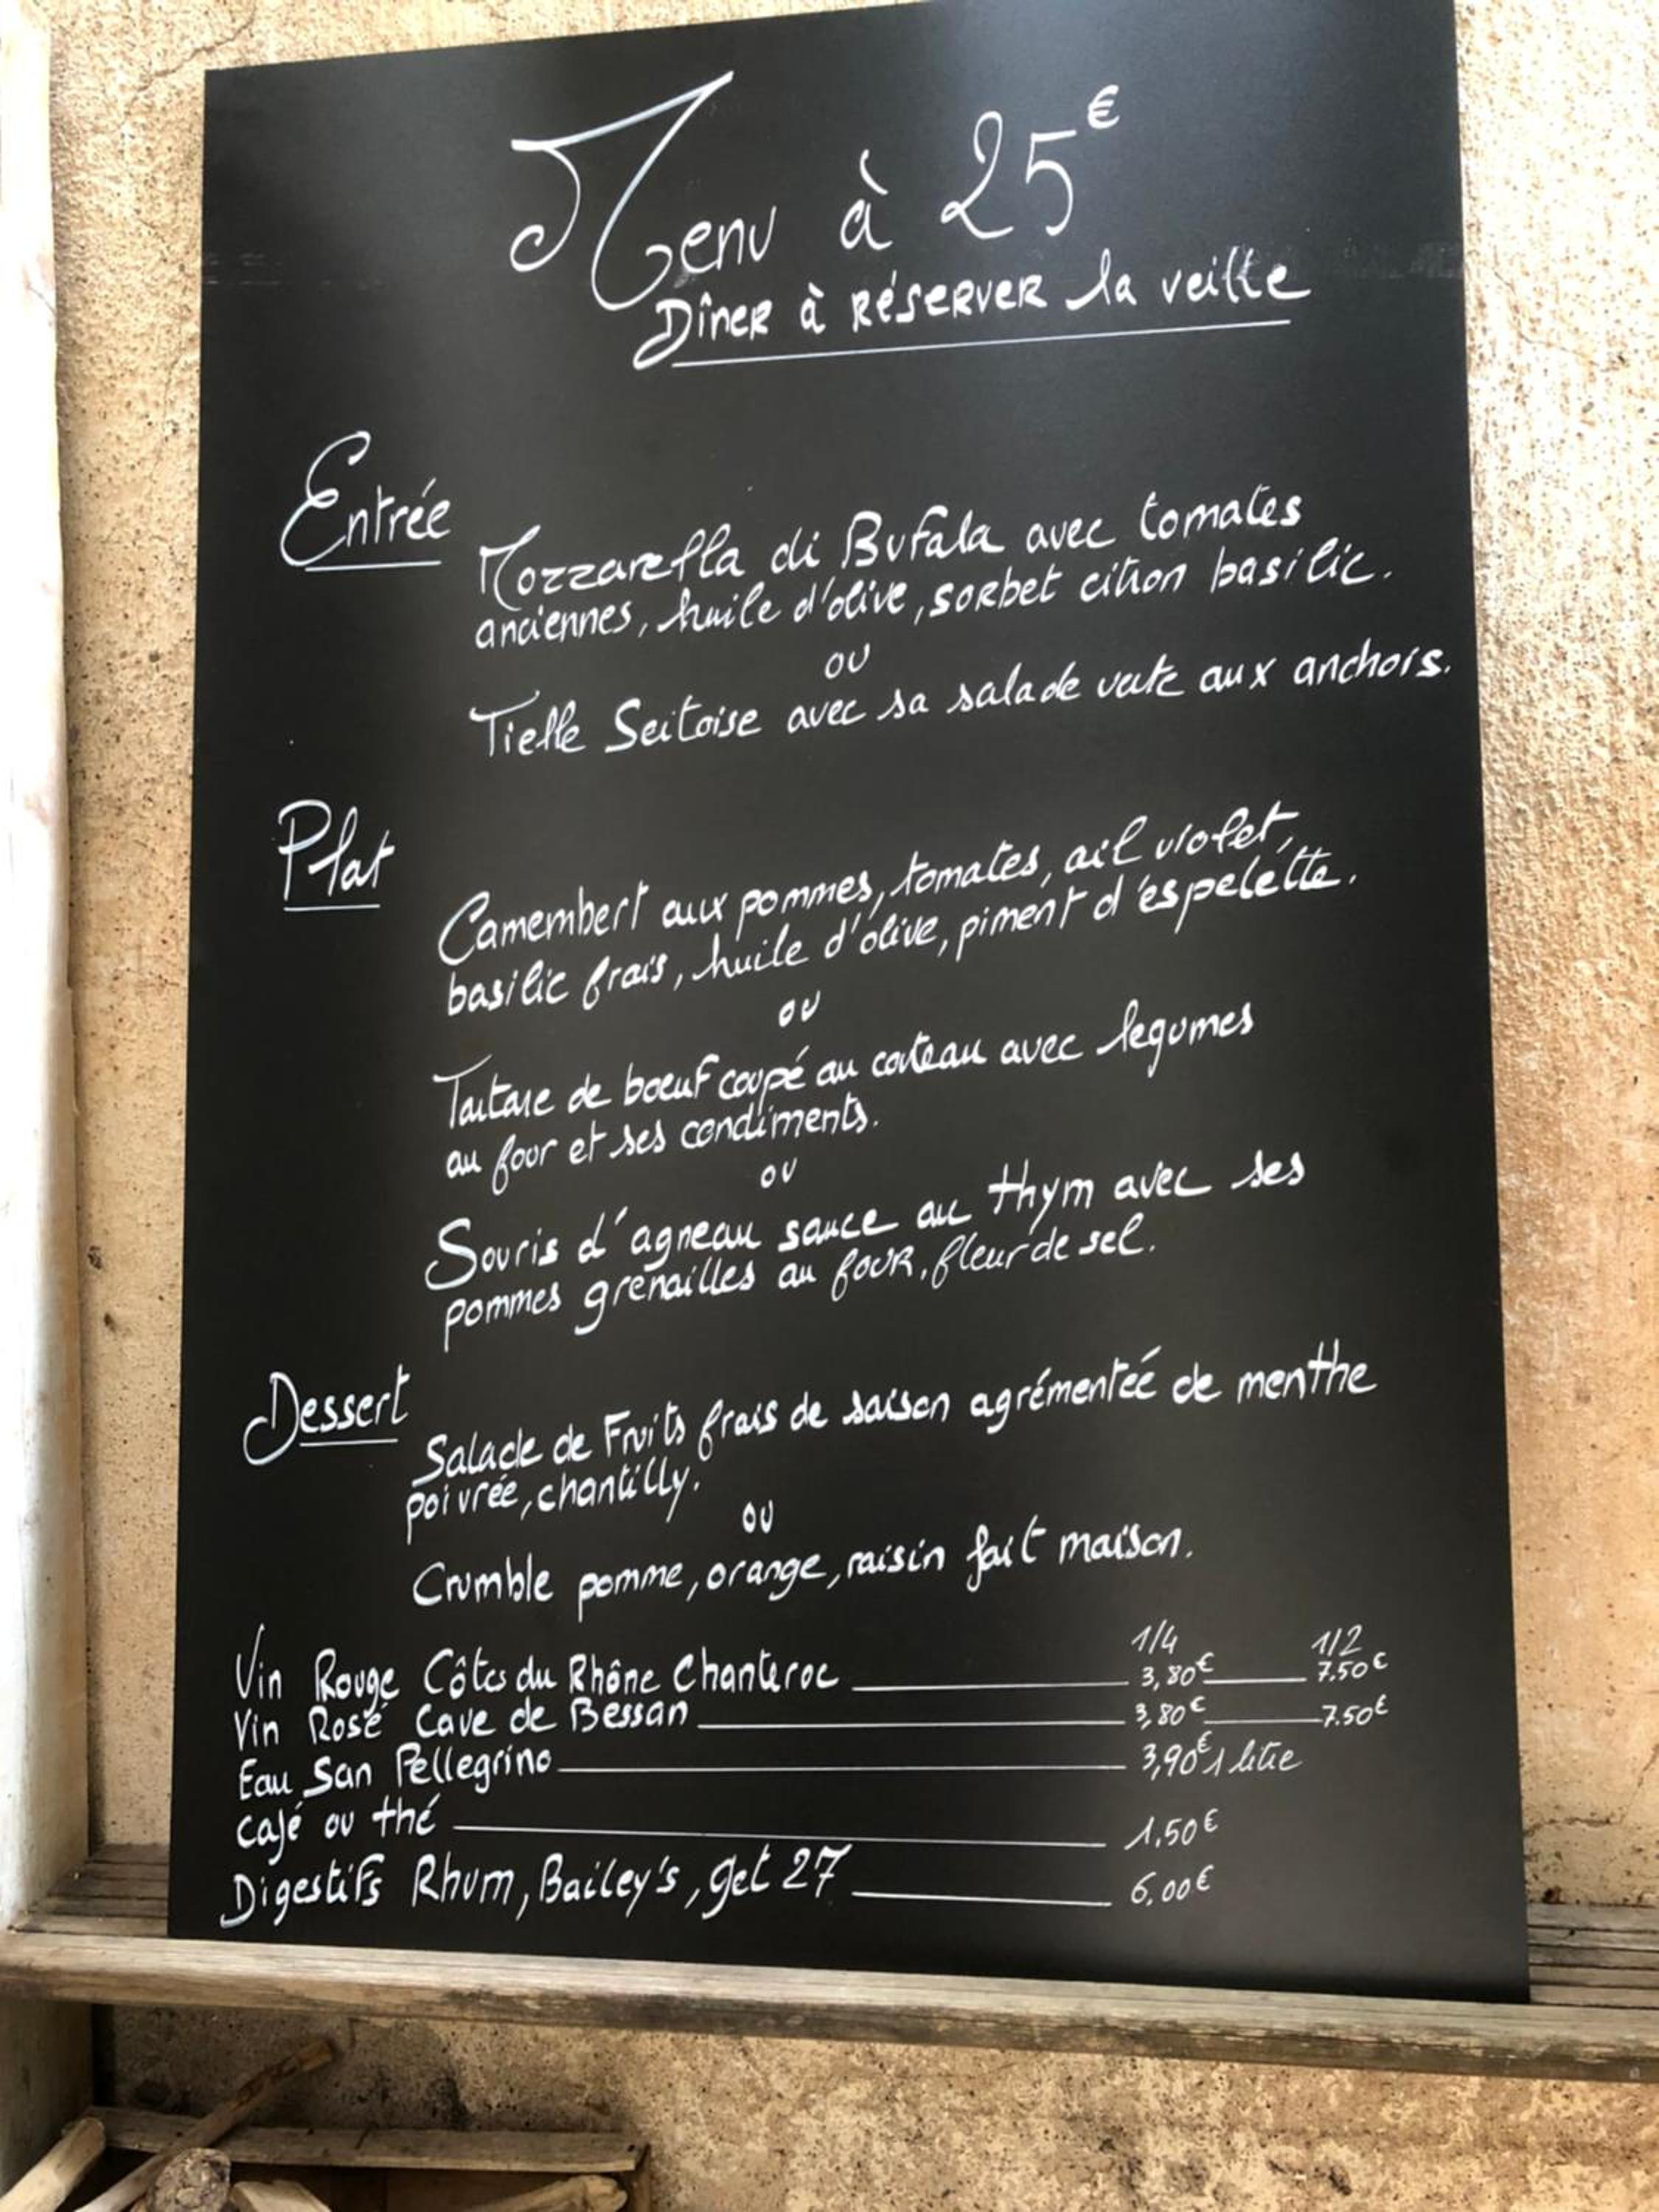 Menu à 25€
Dîner à réserver la veille
Entrée
Mozzarella di Bufala avec tomates
anciennes, huile d'olive, sorbet citron basilic.
ou
Tielle Seitoise avec sa salade verte aux anchois.
Plat
Camembert aux pommes, tomates, ail violet,
basilic frais, huile d'olive, piment d'espelette.
ou
Tartare de boeuf coupé au couteau avec legumes
au four et ses condiments.
ou
Souris d'agneau sauce au thym avec ses
pommes grenailles au four, fleur de sel.
Dessert
Salade de Fruits frais de saison agrémentée de menthe
poivrée, chantilly.
ou
Crumble pomme, orange, raisin fait maison.
1/4 1/2
Vin Rouge Côtes du Rhône Chanteroc 3,80€ 7.50€
Vin Rosé Cave de Bessan 3,80€ 7.50€
Eau San Pellegrino 3,90€ 1 litre
Café ou thé 1,50€
Digestifs Rhum, Bailey's, get 27 6,00€